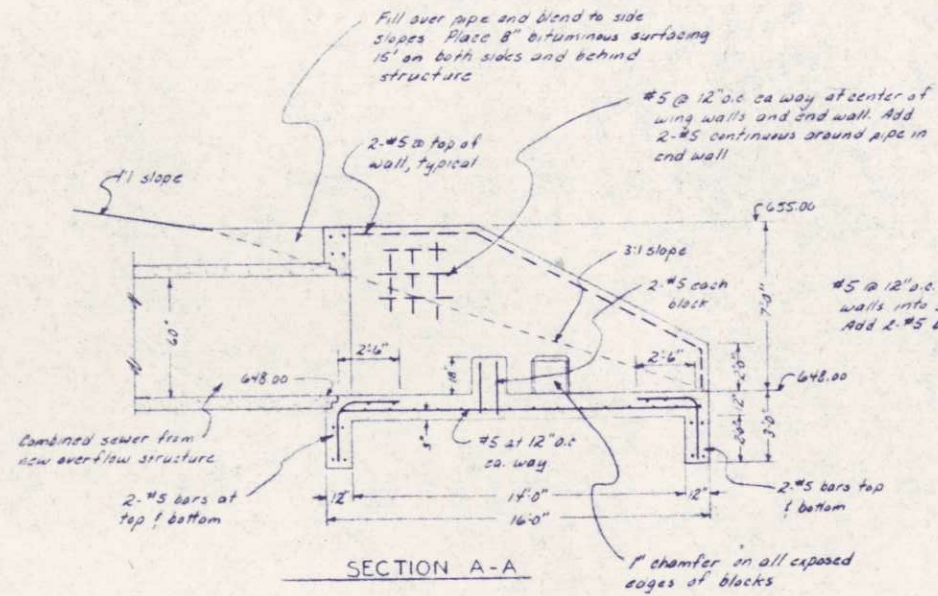 Fill over pipe and blend to side
slopes. Place 8" bituminous surfacing
15' on both sides and behind
structure
#5 @ 12" o.c. ea way at center of
wing walls and end wall. Add
2-#5 continuous around pipe in
end wall
2-#5 @ top of
wall, typical
4:1 slope
655.00
3:1 slope
2-#5 each
block
#5 @ 12" o.c.
walls into
Add 2-#5
7'-0"
60"
2'-6"
18"
2'-6"
2'-0"
648.00
648.00
12"
3"
2'-0"
3'-0"
Combined sewer from
new overflow structure
#5 at 12" o.c
ea. way
2-#5 bars at
top & bottom
12"
14'-0"
12"
2-#5 bars top
& bottom
16'-0"
SECTION A-A
1" chamfer on all exposed
edges of blocks